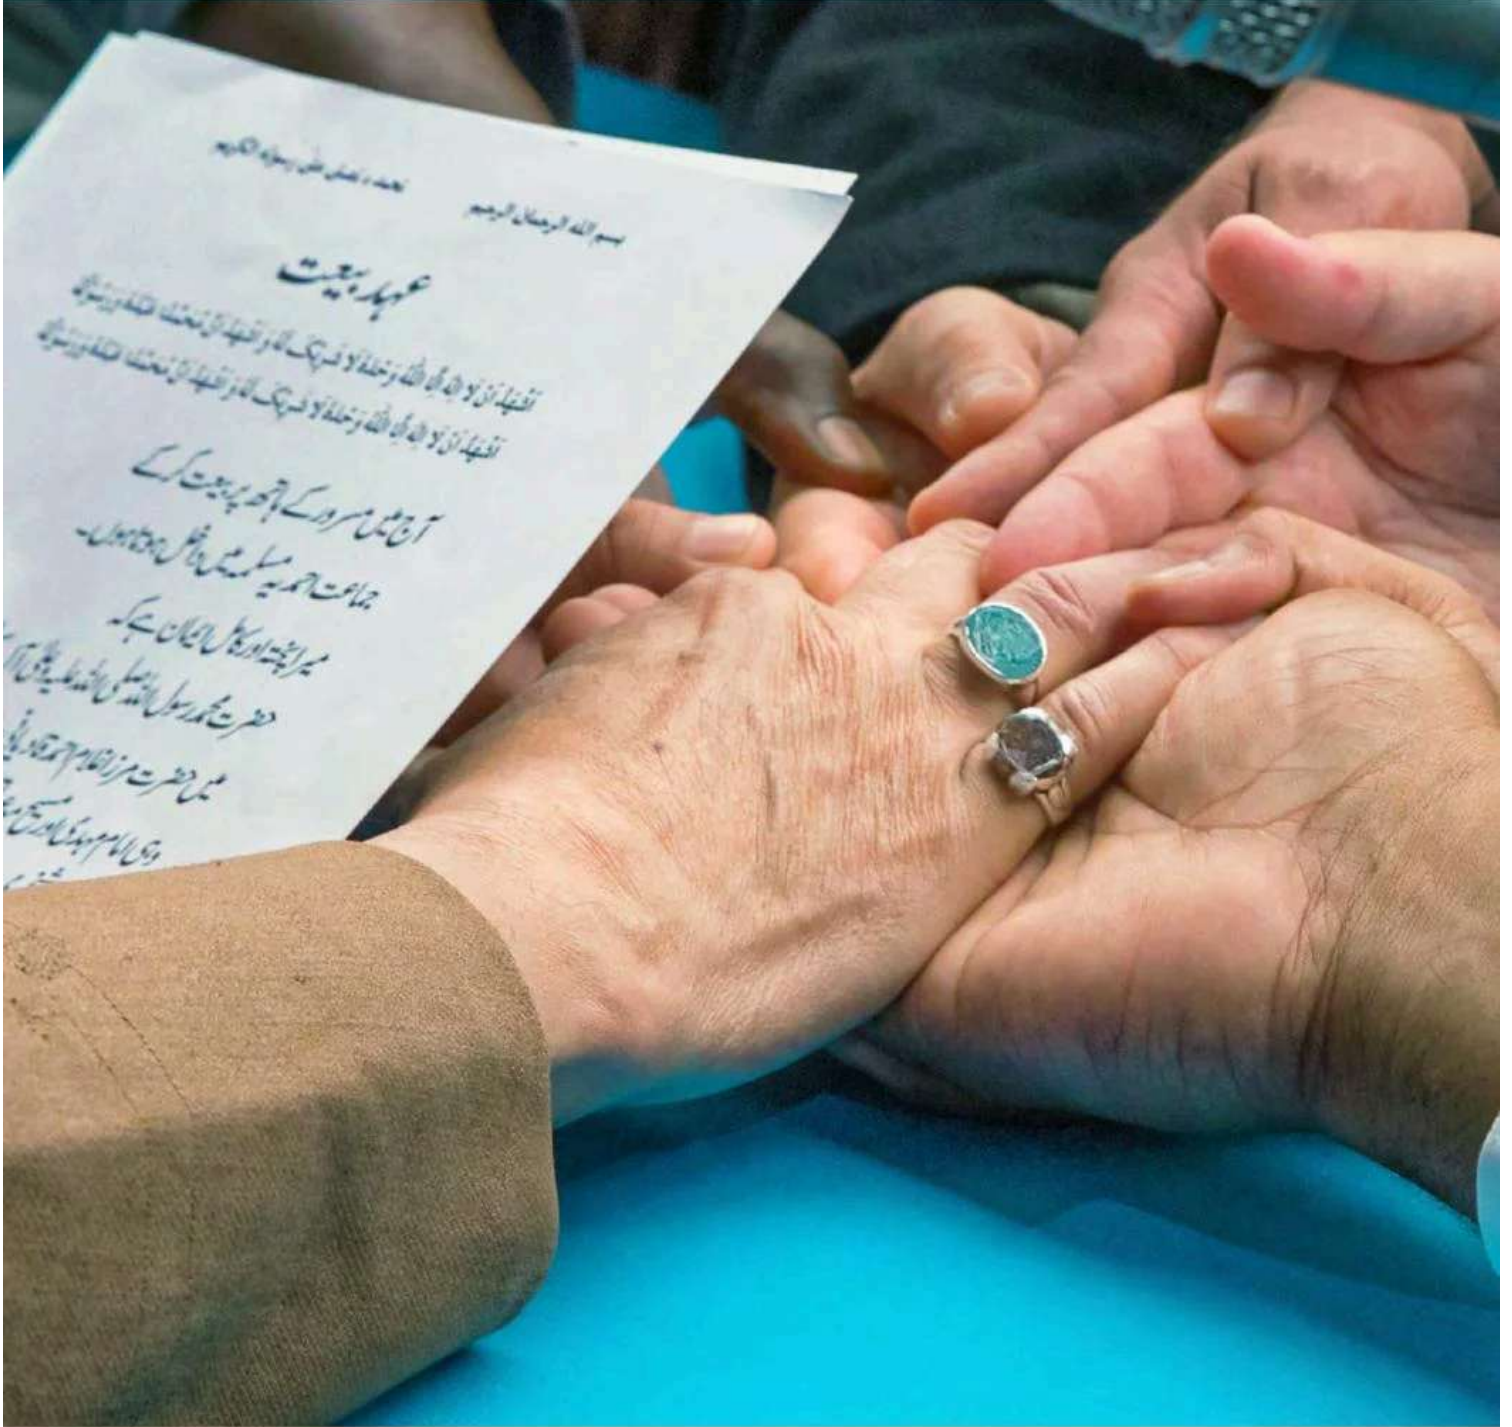 بسم اللہ الرحمان الرحیم نحمدہ و نصلی علی رسولہ الکریم
عہد بیعت
اَشْهَدُ اَنْ لَا اِلٰهَ اِلَّا اللّٰهُ وَحْدَهٗ لَا شَرِیْکَ لَهٗ وَ اَشْهَدُ اَنَّ مُحَمَّدًا عَبْدُهٗ وَرَسُوْلُهٗ
اَشْهَدُ اَنْ لَا اِلٰهَ اِلَّا اللّٰهُ وَحْدَهٗ لَا شَرِیْکَ لَهٗ وَ اَشْهَدُ اَنَّ مُحَمَّدًا عَبْدُهٗ وَرَسُوْلُهٗ
آج میں مسرور کے ہاتھ پر بیعت کر کے
جماعت احمدیہ مسلمہ میں داخل ہوتا ہوں۔
میرا پختہ اور کامل ایمان ہے کہ
حضرت محمد رسول اللہ صلی اللہ علیہ وسلم
میں حضرت مرزا غلام احمد قادیانی
وہی امام مہدی اور مسیح